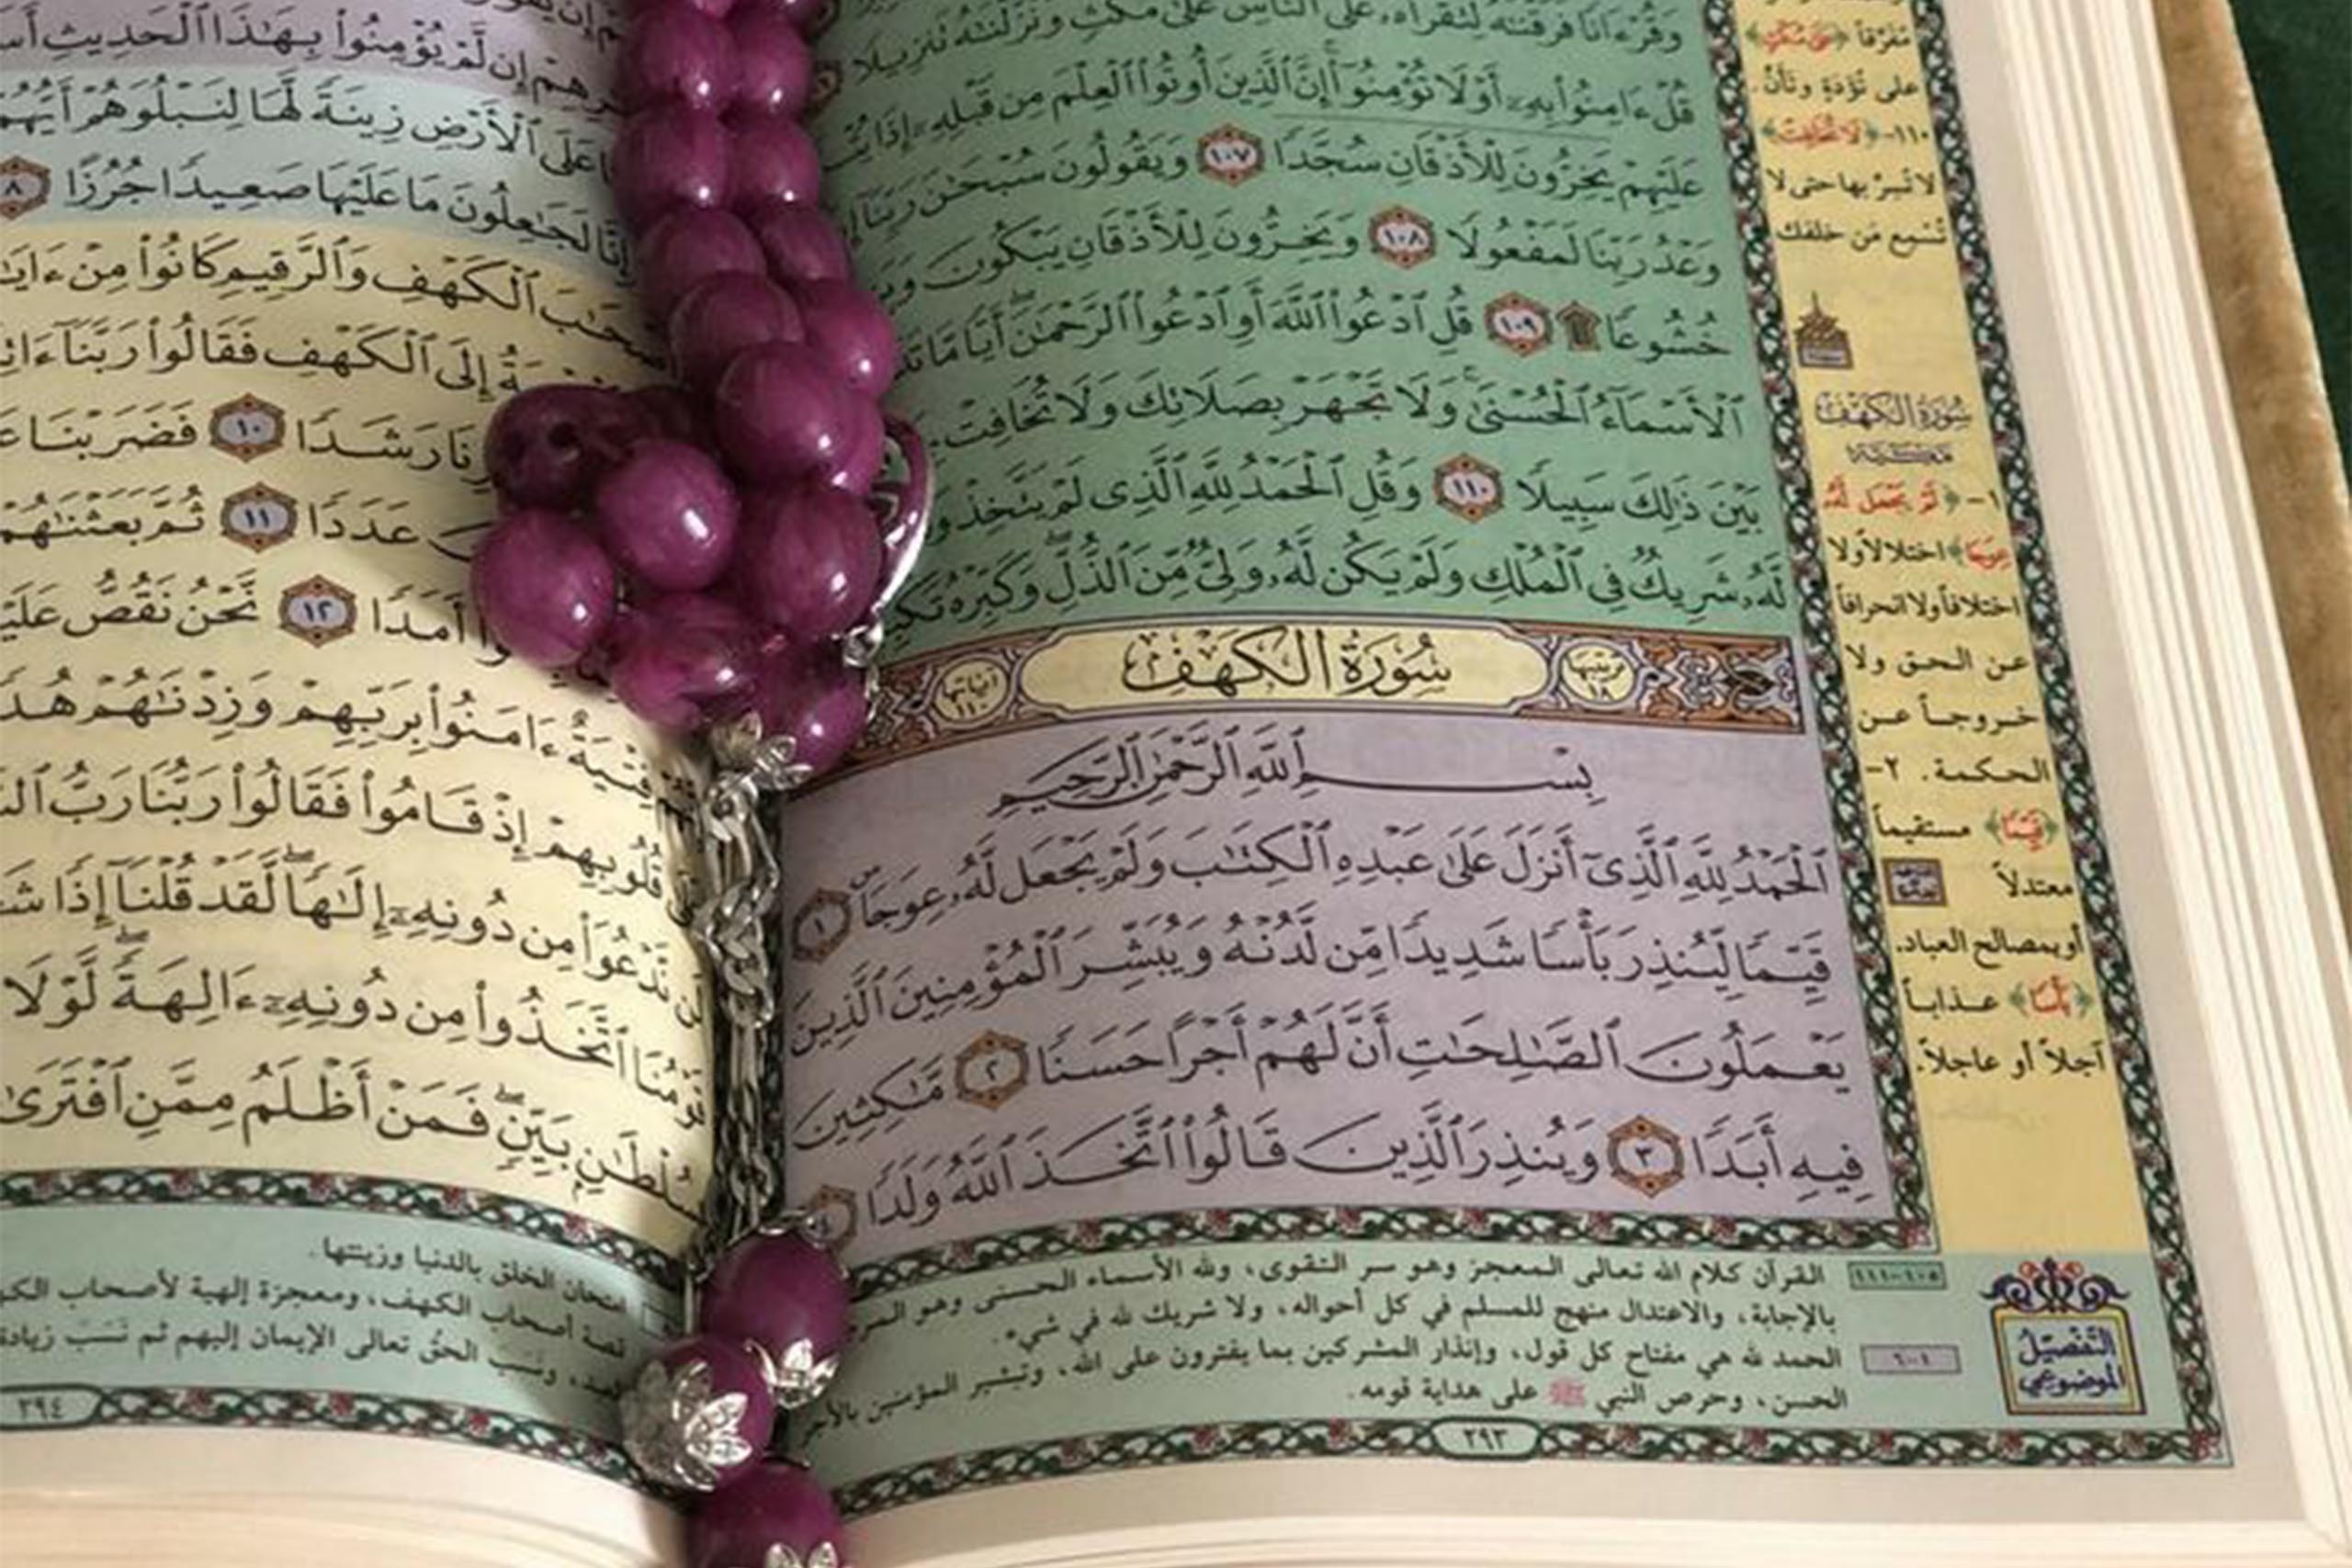 وَقُرْءَانًا فَرَقْنَٰهُ لِتَقْرَأَهُۥ عَلَى ٱلنَّاسِ عَلَىٰ مُكْثٍ وَنَزَّلْنَٰهُ تَنزِيلًا
قُلْ ءَامِنُوا۟ بِهِۦٓ أَوْ لَا تُؤْمِنُوٓا۟ إِنَّ ٱلَّذِينَ أُوتُوا۟ ٱلْعِلْمَ مِن قَبْلِهِۦٓ إِذَا
عَلَيْهِمْ يَخِرُّونَ لِلْأَذْقَانِ سُجَّدًا ١٠٧ وَيَقُولُونَ سُبْحَٰنَ رَبِّنَآ
وَعْدُ رَبِّنَا لَمَفْعُولًا ١٠٨ وَيَخِرُّونَ لِلْأَذْقَانِ يَبْكُونَ
خُشُوعًا ۩ ١٠٩ قُلِ ٱدْعُوا۟ ٱللَّهَ أَوِ ٱدْعُوا۟ ٱلرَّحْمَٰنَ ۖ أَيًّا مَّا
ٱلْأَسْمَآءُ ٱلْحُسْنَىٰ ۚ وَلَا تَجْهَرْ بِصَلَاتِكَ وَلَا تُخَافِتْ
بَيْنَ ذَٰلِكَ سَبِيلًا ١١٠ وَقُلِ ٱلْحَمْدُ لِلَّهِ ٱلَّذِى لَمْ يَتَّخِذْ
لَّهُۥ شَرِيكٌ فِى ٱلْمُلْكِ وَلَمْ يَكُن لَّهُۥ وَلِىٌّ مِّنَ ٱلذُّلِّ ۖ وَكَبِّرْهُ
ترتيبها ١٨ سُورَةُ الكَهْف آياتها ١١٠
بِسْمِ ٱللَّهِ ٱلرَّحْمَٰنِ ٱلرَّحِيمِ
ٱلْحَمْدُ لِلَّهِ ٱلَّذِىٓ أَنزَلَ عَلَىٰ عَبْدِهِ ٱلْكِتَٰبَ وَلَمْ يَجْعَل لَّهُۥ عِوَجَا ۜ ١
قَيِّمًا لِّيُنذِرَ بَأْسًا شَدِيدًا مِّن لَّدُنْهُ وَيُبَشِّرَ ٱلْمُؤْمِنِينَ ٱلَّذِينَ
يَعْمَلُونَ ٱلصَّٰلِحَٰتِ أَنَّ لَهُمْ أَجْرًا حَسَنًا ٢ مَّٰكِثِينَ
فِيهِ أَبَدًا ٣ وَيُنذِرَ ٱلَّذِينَ قَالُوا۟ ٱتَّخَذَ ٱللَّهُ وَلَدًا ٤
متفرقاً ﴿على مكث﴾
على تؤدةٍ وتأنٍّ.
١١٠- ﴿لا تخافت﴾
لا تسرّ بها حتى لا
تسمع من خلفك
سُورَةُ الكَهْف
مكية
١- ﴿لم يجعل له
عوجا﴾ اختلالاً ولا
اختلافاً ولا انحرافاً
عن الحق ولا
خروجاً عن
الحكمة. ٢-
﴿قيما﴾ مستقيماً
معتدلاً
أو بمصالح العباد.
﴿بأسا﴾ عذاباً
آجلاً أو عاجلاً.
التفصيل الموضوعي
١٠٥-١١١ القرآن كلام الله تعالى المعجز وهو سر التقوى، ولله الأسماء الحسنى وهو
بالإجابة، والاعتدال منهج للمسلم في كل أحواله، ولا شريك لله في شيء.
١-٦ الحمد لله هي مفتاح كل قول، وإنذار المشركين بما يفترون على الله، وتبشير المؤمنين بالأجر
الحسن، وحرص النبي ﷺ على هداية قومه.
٢٩٣
إِن لَّمْ يُؤْمِنُوا۟ بِهَٰذَا ٱلْحَدِيثِ
عَلَى ٱلْأَرْضِ زِينَةً لَّهَا لِنَبْلُوَهُمْ أَيُّهُمْ
لَجَٰعِلُونَ مَا عَلَيْهَا صَعِيدًا جُرُزًا ٨
ٱلْكَهْفِ وَٱلرَّقِيمِ كَانُوا۟ مِنْ
إِلَى ٱلْكَهْفِ فَقَالُوا۟ رَبَّنَآ
رَشَدًا ١٠ فَضَرَبْنَا
عَدَدًا ١١ ثُمَّ بَعَثْنَٰهُمْ
أَمَدًا ١٢ نَّحْنُ نَقُصُّ
فِتْيَةٌ ءَامَنُوا۟ بِرَبِّهِمْ وَزِدْنَٰهُمْ
قُلُوبِهِمْ إِذْ قَامُوا۟ فَقَالُوا۟ رَبُّنَا رَبُّ
لَن نَّدْعُوَا۟ مِن دُونِهِۦٓ إِلَٰهًا ۖ لَّقَدْ قُلْنَآ إِذًا
قَوْمُنَا ٱتَّخَذُوا۟ مِن دُونِهِۦٓ ءَالِهَةً ۖ لَّوْلَا
بَيِّنٍ ۖ فَمَنْ أَظْلَمُ مِمَّنِ ٱفْتَرَىٰ
امتحان الخلق بالدنيا وزينتها.
قصة أصحاب الكهف، ومعجزة إلهية لأصحاب
ونسب الحق تعالى الإيمان إليهم ثم نسب زيادة
٢٩٤